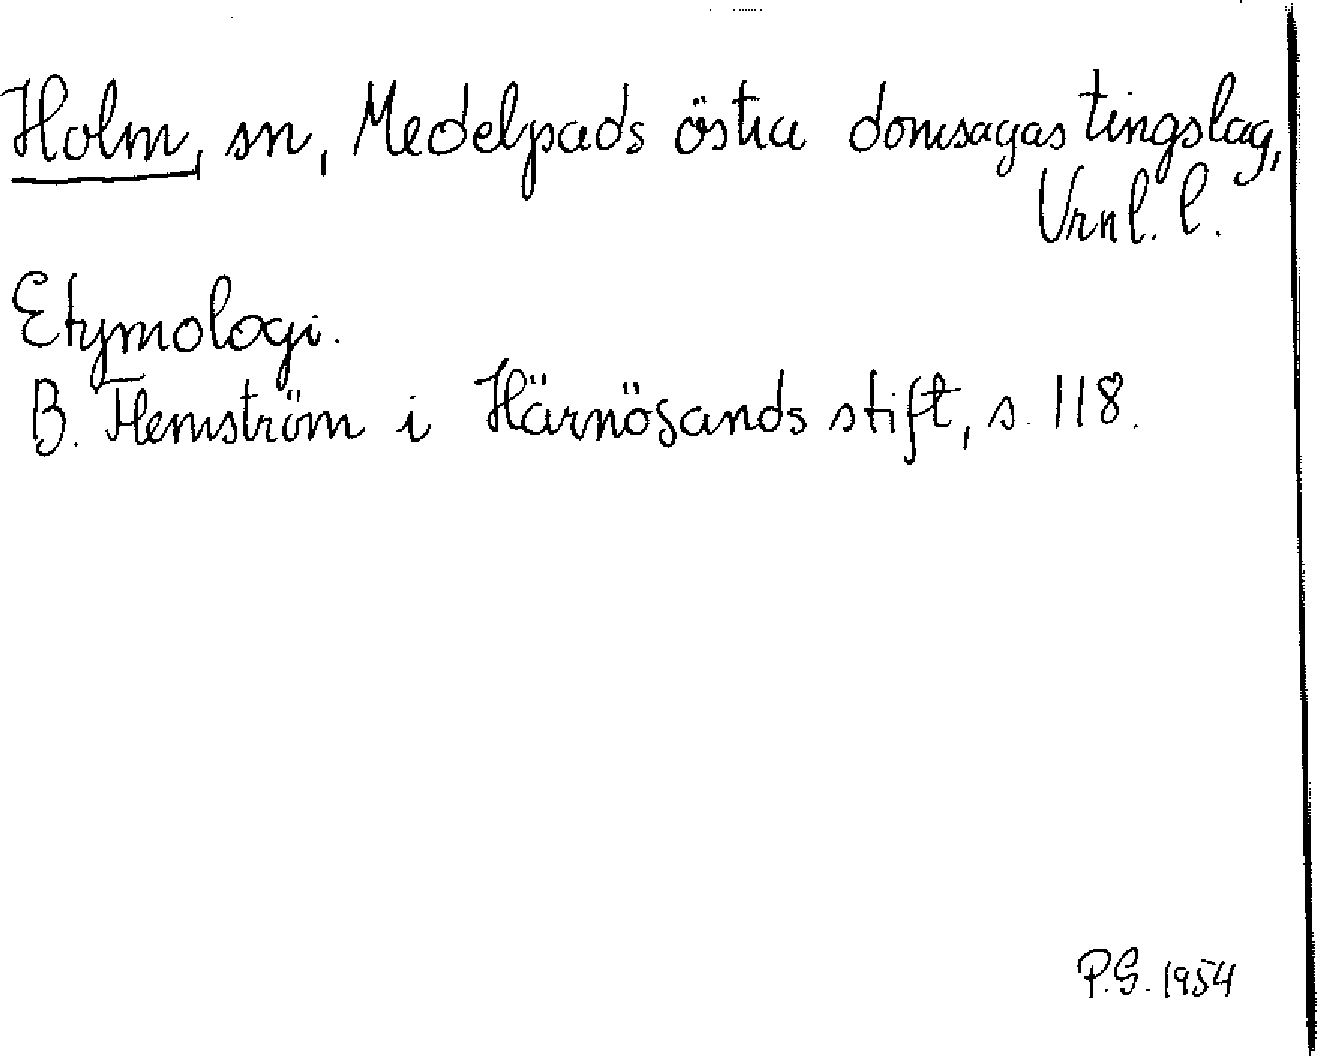 Holm, sn, Medelpads östra domsagas tingslag,
Vrnl. l.
Etymologi.
B. Hemström i Härnösands stift, s. 118.
P.G. 1954